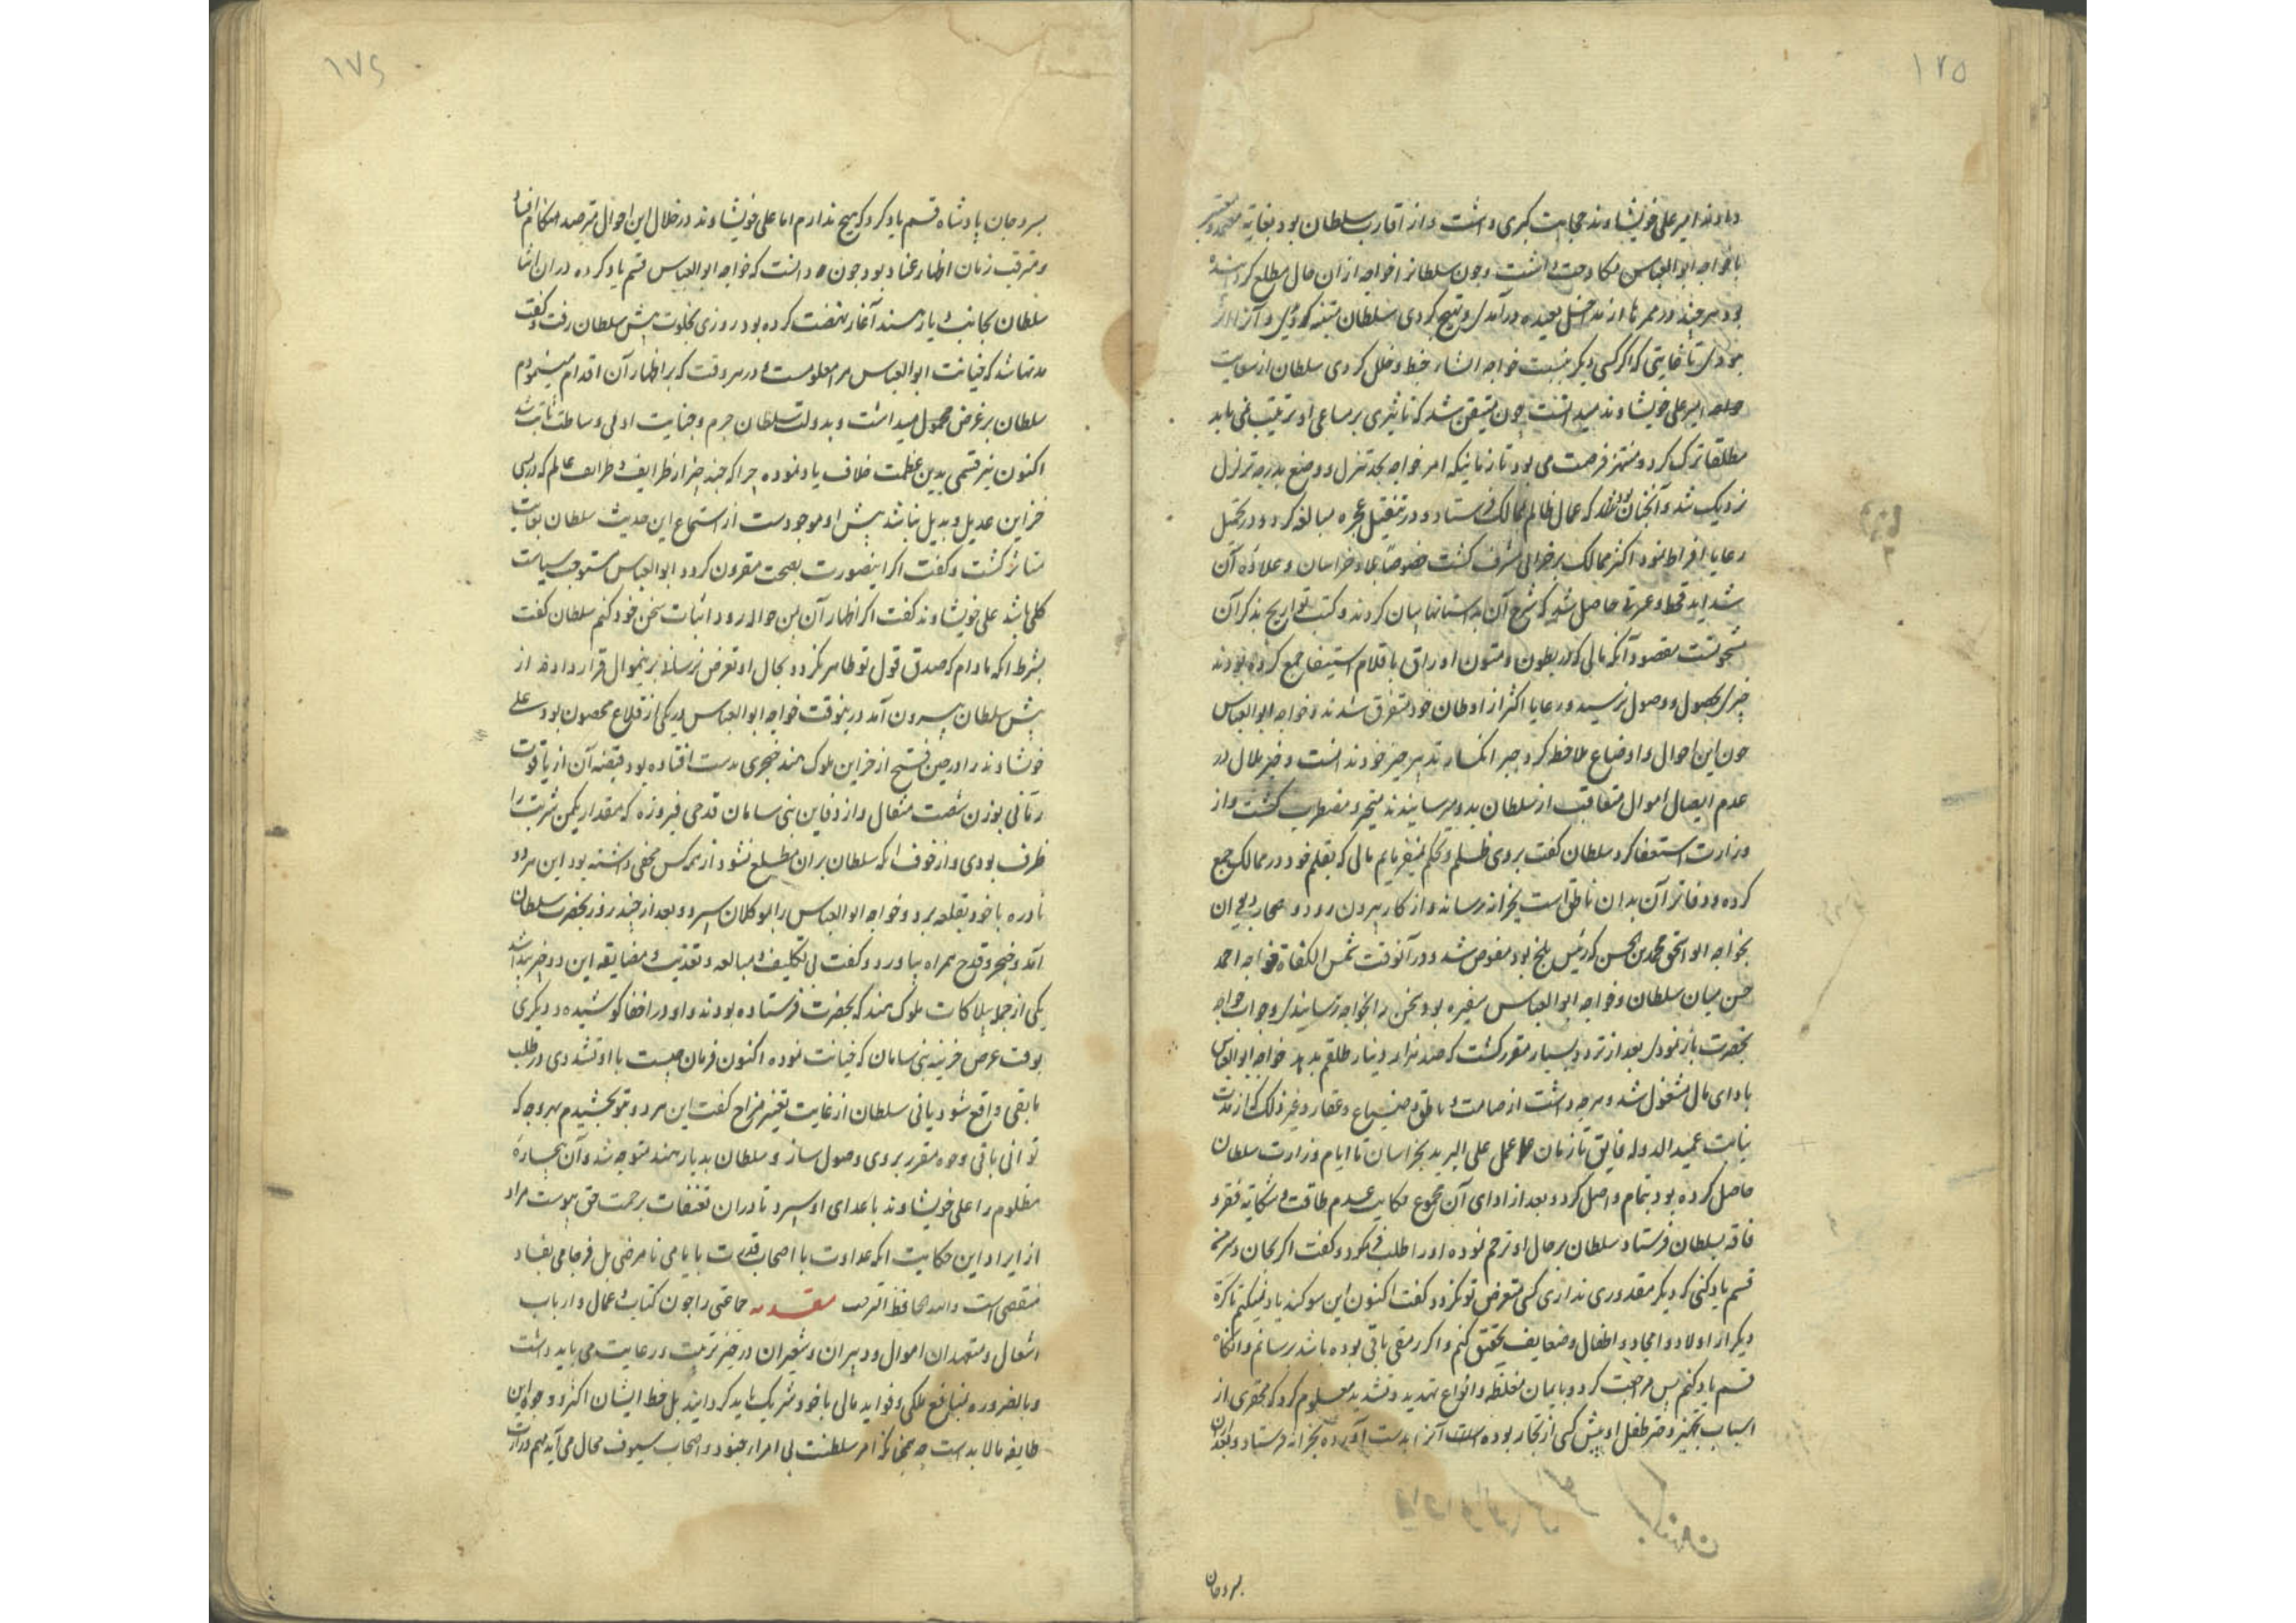 ۱۷۵
دادند امیر علی خویشاوند حجابت کبری داشت و از اقارب سلطان بود بغایت معتبر
با خواجه ابوالعباس مکاوحت داشت و چون سلطانرا خواجه ازان حال مطلع کردانیده
بود هر چند در ممرها از مدخل بعیده درآمدی و تقبیح کردی سلطان متنبه
بودی تا غایتی که اگر کسی دیگر بنسبت خواجه اشارت خبط و خلل کردی سلطان از سعایت
امیر علی خویشاوند میدانست چون متیقن شد که تاثیری بر مساعی او ترتیب نمی یابد
مطلقا ترک کرد و منتهز فرصت می بود تا زمانیکه امر خواجه بحد تنزل و وضع بدرجه تزلزل
نزدیک شد و آنچنان بود که عمال ظالم بممالک فرستاد و در تثقیل عجزه مبالغه کرد و در تحمیل
رعایا افراط نمود اکثر ممالک بر خرابی مشرف کشت خصوصا بلاد خراسان و علاوه آن
شداید قحط و عرتی حاصل شد که شرح آن بداستانها بیان کردند و کتب تواریخ بذکر آن
مشحونست مقصود آنکه مالی که در بطون و متون اوراق باقلام استیفا جمع کرده بودند
چیزی بحصول و وصول نرسید و رعایا اکثر از اوطان خود متفرق شدند و خواجه ابوالعباس
چون این احوال و اوضاع ملاحظه کرد جبر انکسار تدبیر جز خود ندانست و خبر ملال در
عدم ایصال اموال متعاقب از سلطان بدو میرسانیدند متحیر و مضطرب کشت و از
وزارت استعفا کرد سلطان کفت بروی ظلم و تحکم نمیفرمایم مالی که بقلم خود در ممالک جمع
کرده و دفاتر آن بدان ناطق است بخزانه رساند و از کار بیرون رود و اصحاب دیوان
بخواجه ابو اسحق محمد بن الحسن که رئیس بلخ بود مفوض شد و در آنوقت شمس الکفاة خواجه احمد
حسن میان سلطان و خواجه ابوالعباس سفیر بود سخن را بخواجه رسانیدی و جواب خواجه
بحضرت باز نمودی بعد از تردد بسیار مقرر کشت که صد هزار دینار بدهد خواجه ابوالعباس
بادای مال مشغول شد و هر چه داشت از صامت و ناطق و ضیاع و عقار و غیر ذلک که از مدت
نیابت عمید الدوله فایق تا زمان عمل علی البرید بخراسان تا ایام وزارت سلطان
حاصل کرده بود بتمام واصل کرد و بعد از ادای آن مجموع حکایت عدم طاقت و شکایت فقر و
فاقه بسلطان فرستاد سلطان بر حال او ترحم نموده او را طلب فرمود و کفت اگر بجان و سر من
قسم یاد کنی که دیگر مقدوری نداری کسی متعرض تو نکردد کفت اکنون این سوکند یاد نمیکنم تا کرة
دیگر از اولاد و امجاد و اطفال و ضعایف تحقیق کنم و اگر رمقی باقی بوده باشد برسانم و آنکاه
قسم یاد کنم پس مراجعت کرد و بایمان مغلظه و انواع تهدید و تشدید معلوم کرد که محقری از
اسباب تجهیز دختر طفل او پیش کسی از تجار بوده است آنرا بدست آورده بخزانه فرستاد و بعد ازان
بسر و جان
۱۷۶
بسر و جان پادشاه قسم یاد کرد که هیچ ندارم اما علی خویشاوند در خلال این احوال مترصد هنکام افساد
و مترقب زمان اظهار عناد بود چون دانست که خواجه ابوالعباس قسم یاد کرده دران اثنا
سلطان بجانب دیار هند آغاز نهضت کرده بود روزی بخلوت پیش سلطان رفت و کفت
مدتها شد که خیانت ابوالعباس مرا معلومست و در هر وقت که بر اظهار آن اقدام مینمودم
سلطان بر غرض محمول میداشت و بدولت سلطان جرم و جنایت او بی وساطت ثابت شد
اکنون نیز قسمی بدین عظمت خلاف یاد نموده چرا که چند چیز از ظرایف و طرایف عالم که در بسی
خزاین عدیل و بدیل نباشد پیش او موجودست از استماع این حدیث سلطان بغایت
متاثر کشت و کفت اگر اینصورت بصحت مقرون کردد ابوالعباس مستوجب سیاست
کلی باشد علی خویشاوند کفت اگر اظهار آن بمن حواله رود اثبات سخن خود کنم سلطان کفت
بشرط انکه مادام که صدق قول تو ظاهر نکردد بحال او تعرض نرسانی برینموال قرار دادند از
پیش سلطان بیرون آمد درینوقت خواجه ابوالعباس در یکی از قلاع محصون بود و علی
خویشاوند را در حین فتح از خزاین ملوک هند خنجری بدست افتاده بود قبضه آن از یاقوت
رمانی بوزن شصت مثقال و از دفاین بنی سامان قدحی فیروزه که مقدار یکمن شربت را
ظرف بودی و از خوف انکه سلطان بران مطلع نشود از همه کس مخفی داشته بود این هر دو
نادره با خود بقلعه برد و خواجه ابوالعباس را بموکلان سپرد و بعد از چند روز بحضرت سلطان
آمد و خنجر و قدح همراه بیاورد و کفت بی تکلیف و مبالغه و تعذیب و مضایقه این دو چیز پیدا شد
یکی از جمله بلاکات ملوک هند که بحضرت فرستاده بودند و او در اخفا کوشیده و دیگری
بوقت عرض خزینه بنی سامان که خیانت نموده اکنون فرمان چیست با او تشددی در طلب
مابقی واقع شود یا نی سلطان از غایت تغیر مزاج کفت این هر دو بتو بخشیدیم بهر وجه که
توانی باقی وجوه مقرر بروی وصول ساز و سلطان بدیار هند متوجه شد و آن بیچاره
مظلوم را علی خویشاوند باعدای او سپرد تا دران تعنفات برحمت حق پیوست مراد
از ایراد این حکایت انکه عداوت با اصحاب قدرت بایامی نامرضی بل فرجامی بفساد
مقضی است والله حافظ القرب مقدمه جماعتی را چون کتاب و عمال و ارباب
اشغال و متعهدان اموال و دبیران و مشیران در حیز تربیت و رعایت می باید داشت
و بالضروره بمنافع ملکی و فواید مالی با خود شریک باید کردانید بل حظ ایشان اکثر و وجود این
طایفه مالابدست چه همچنانکه امر سلطنت بی امراء جنود و اصحاب سیوف محال می آید مهم وزارت